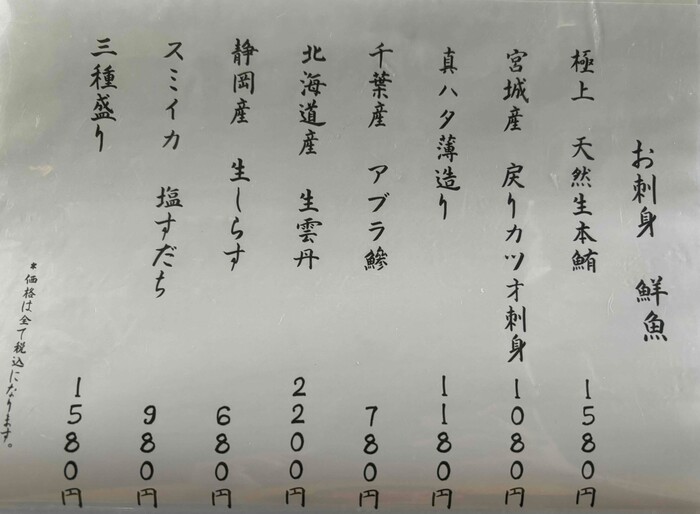 お刺身 鮮魚
極上 天然生本鮪 1580円
宮城産 戻りカツオ刺身 1080円
真ハタ薄造り 1180円
千葉産 アブラ鰺 780円
北海道産 生雲丹 2200円
静岡産 生しらす 680円
スミイカ 塩すだち 980円
三種盛り 1580円
*価格は全て税込になります。